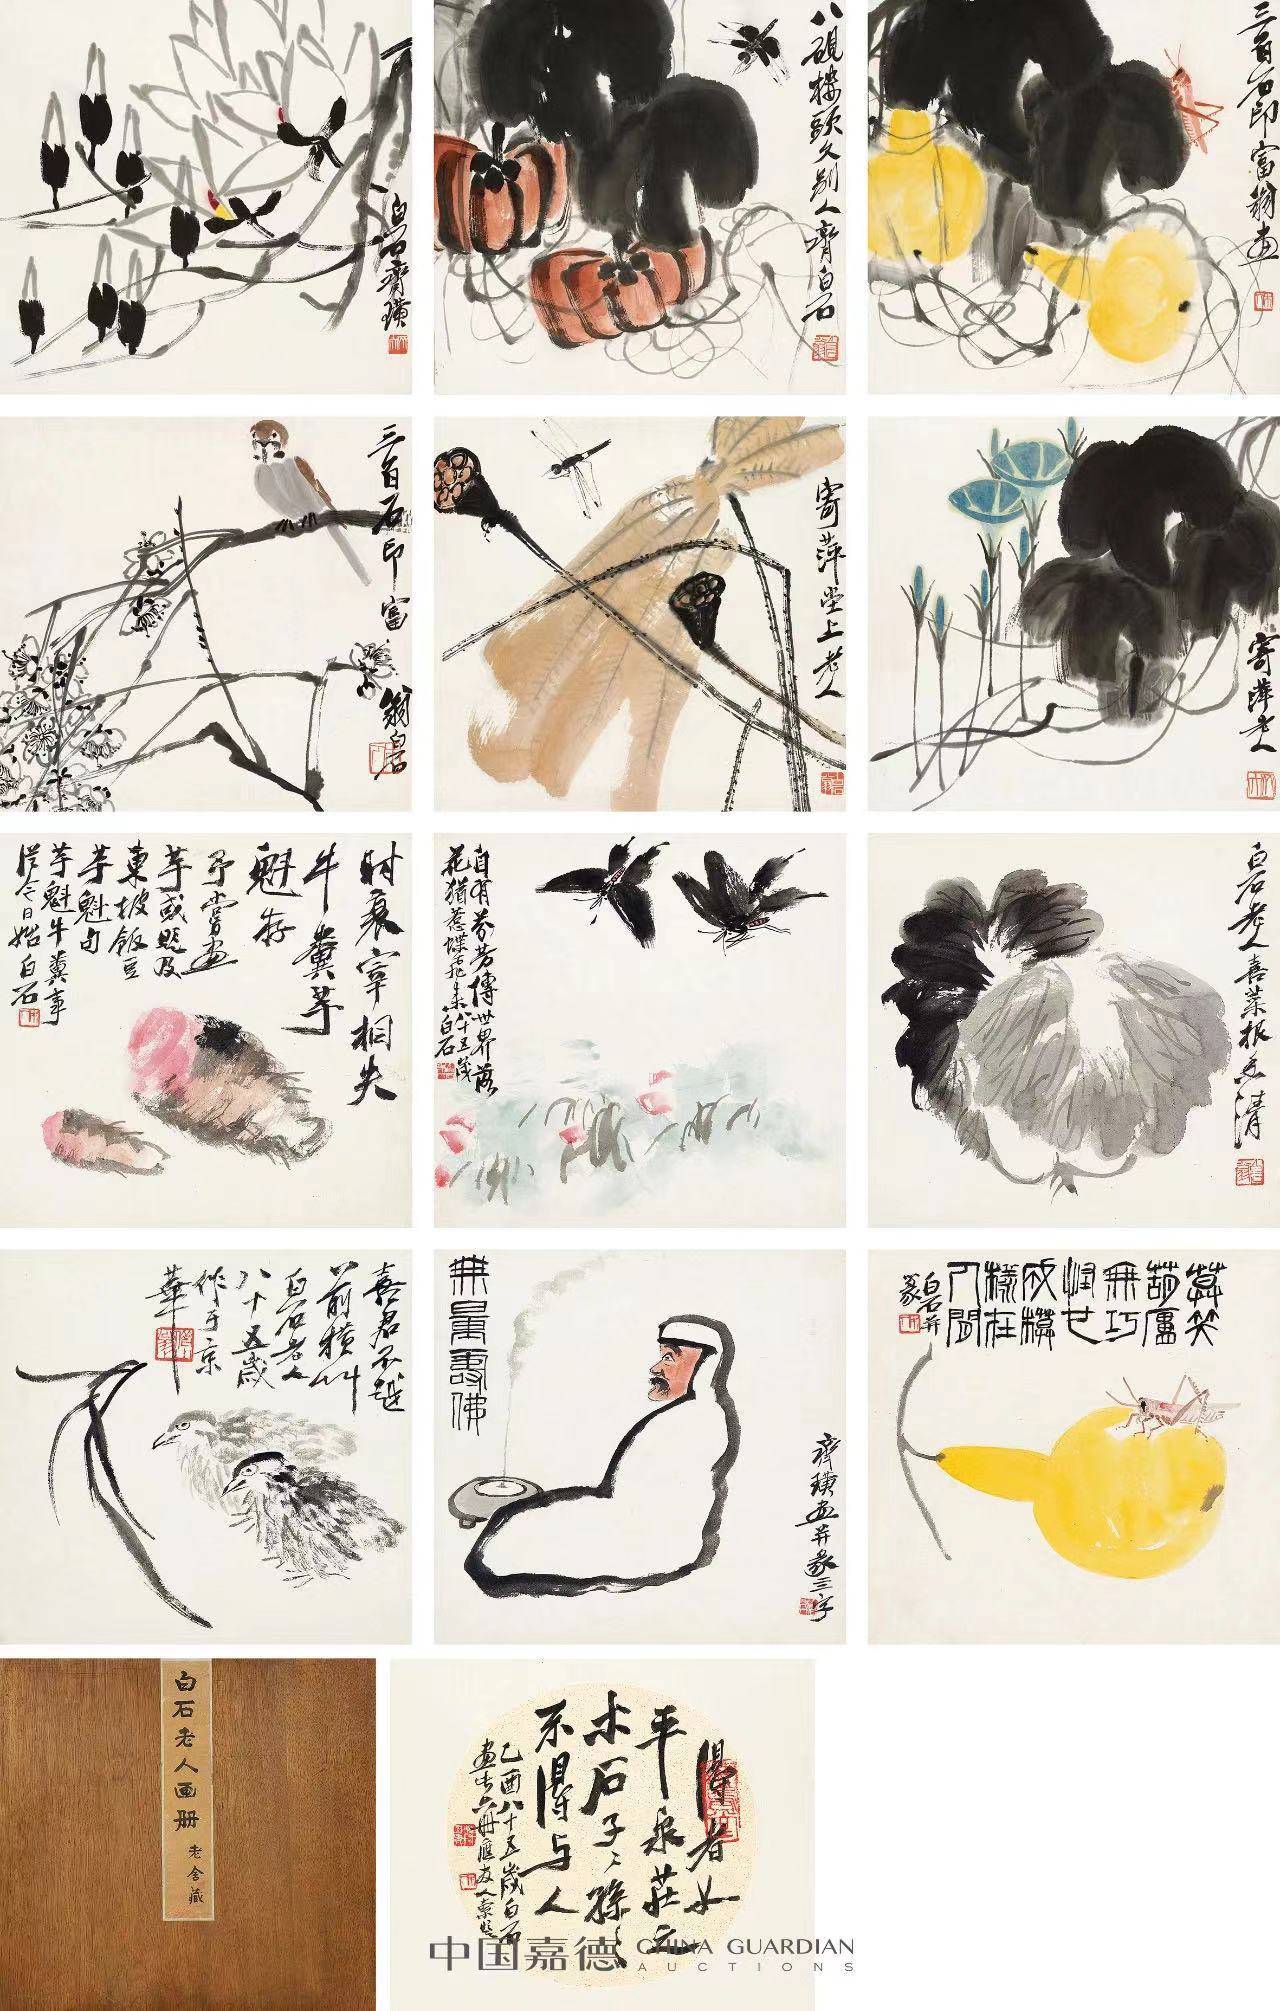 白石齊璜
八硯樓頭久別人齊白石
三百石印富翁畫
三百石印富翁白石
寄萍堂上老人
寄萍老人
時衰宰相失
牛糞芋
魁存
予嘗畫
芋或題及
東坡飯豆
芋魁
芋魁牛糞事
從今日始白石
自有芬芳傳世界落
花猶惹蝶飛來八十五歲
白石
白石老人喜菜根香清
喜君不越
前橫
白石老人
八十五歲
作于京
華
無量壽佛
齊璜畫并篆三字
葫蘆
無巧
成模
樣在
人間
白石并
篆
白石老人画册
老舍藏
得者如
平泉莊之
木石子子孫孫
不得与人
乙酉八十五歲白石
畫
中国嘉德
CHINA GUARDIAN
AUCTIONS